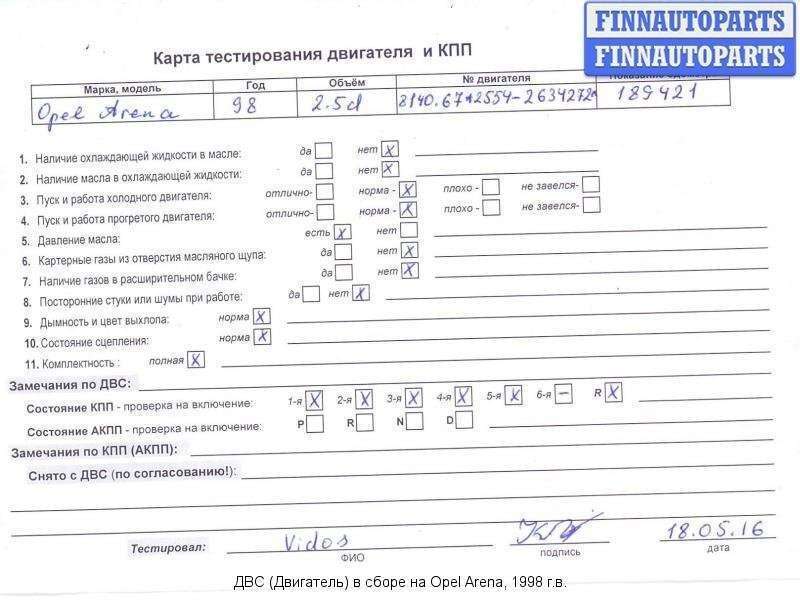 FINNAUTOPARTS
FINNAUTOPARTS
Карта тестирования двигателя и КПП
Марка, модель Год Объём № двигателя
Opel Arena 98 2.5d 8140.67*2554-2634272* 189421
1. Наличие охлаждающей жидкости в масле: да нет X
2. Наличие масла в охлаждающей жидкости: да нет X
3. Пуск и работа холодного двигателя: отлично- норма - X плохо - не завелся-
4. Пуск и работа прогретого двигателя: отлично- норма - X плохо - не завелся-
5. Давление масла: есть X нет
6. Картерные газы из отверстия масляного щупа: да нет X
7. Наличие газов в расширительном бачке: да нет X
8. Посторонние стуки или шумы при работе: да нет X
9. Дымность и цвет выхлопа: норма X
10. Состояние сцепления: норма X
11. Комплектность : полная X
Замечания по ДВС:
Состояние КПП - проверка на включение: 1-я X 2-я X 3-я X 4-я X 5-я X 6-я – R X
Состояние АКПП - проверка на включение: P R N D
Замечания по КПП (АКПП):
Снято с ДВС (по согласованию!):
Тестировал: Vidos 18.05.16
ФИО подпись дата
ДВС (Двигатель) в сборе на Opel Arena, 1998 г.в.